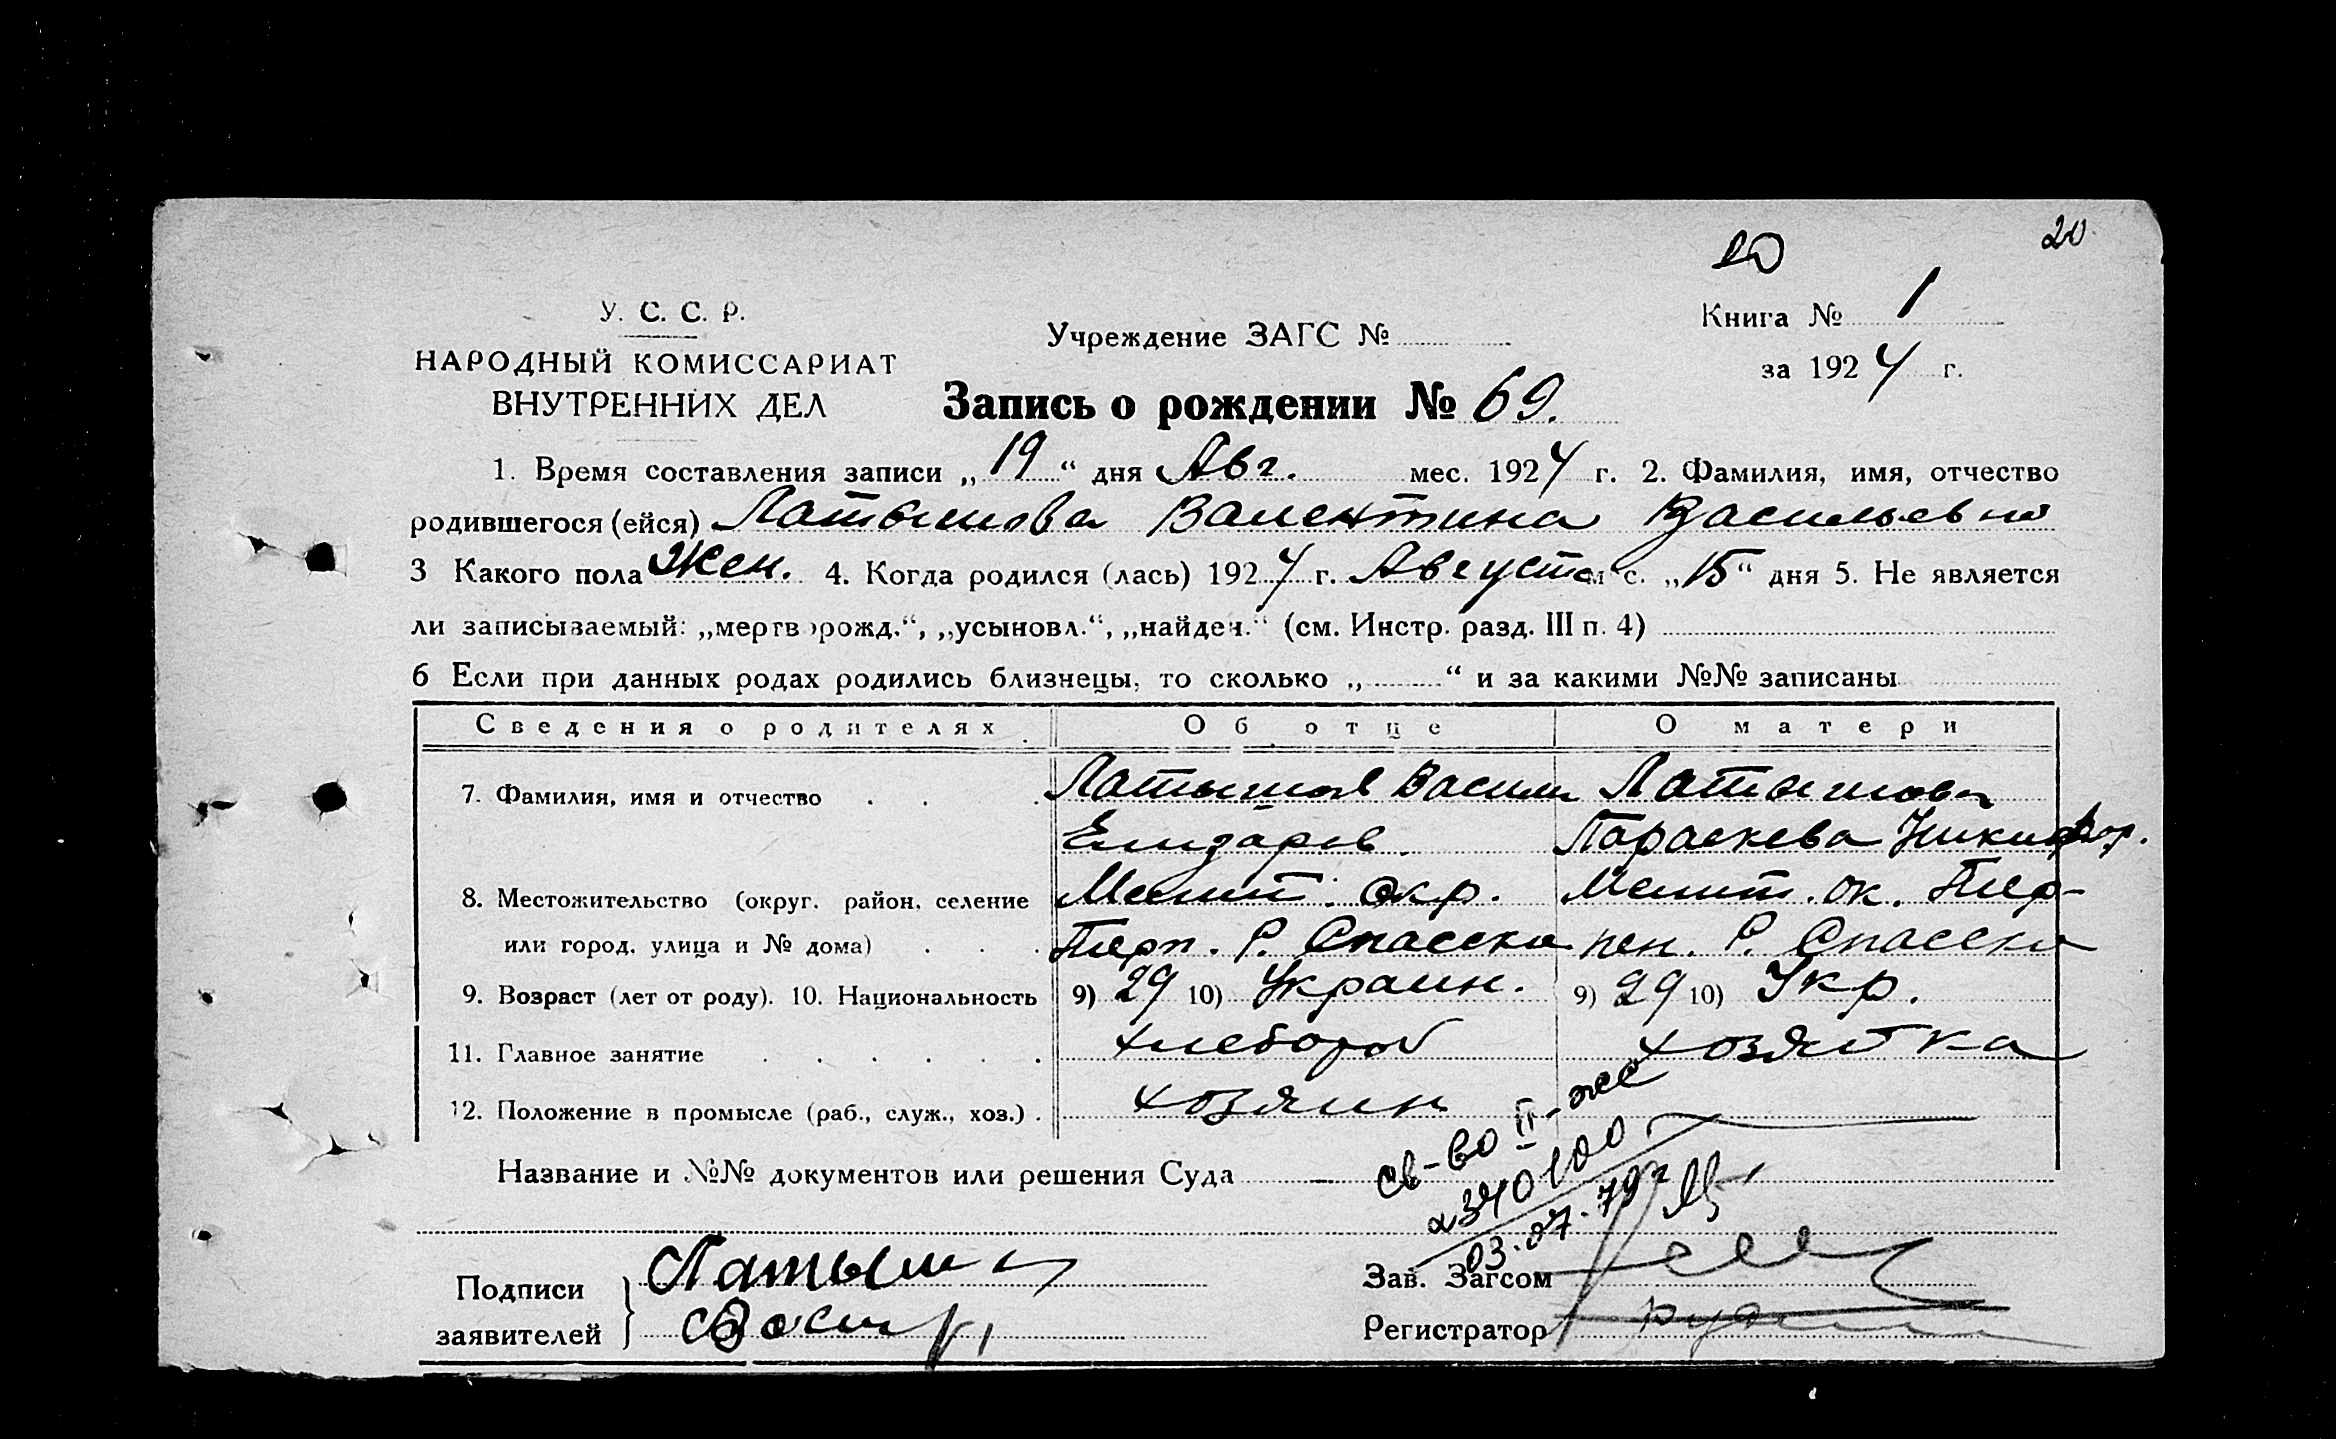 20
20
У. С. С. Р.
НАРОДНЫЙ КОМИССАРИАТ
ВНУТРЕННИХ ДЕЛ
Учреждение ЗАГС №
Книга № 1
за 1924 г.
Запись о рождении № 69.
1. Время составления записи „19“ дня Авг. мес. 1924 г. 2. Фамилия, имя, отчество
родившегося (ейся) Латышова Валентина Васильевна
3 Какого пола Жен. 4. Когда родился (лась) 1924 г. Август м с. „15“ дня 5. Не является
ли записываемый: „мертворожд.“, „усыновл.“, „найден.“ (см. Инстр. разд. III п. 4)
6 Если при данных родах родились близнецы, то сколько „ “ и за какими №№ записаны
Сведения о родителях Об отце О матери
7. Фамилия, имя и отчество Латышов Васили Латышова
Елизаров. Параскева Никифор.
8. Местожительство (округ, район, селение Мелит. окр. Мелит. ок. Тер-
или город, улица и № дома) Терп. Р. Спасское пен. Р. Спасское
9. Возраст (лет от роду). 10. Национальность 9) 29 10) Украин. 9) 29 10) Укр.
11. Главное занятие хлебороб хозяйка
12. Положение в промысле (раб., служ., хоз.) хозяин
Название и №№ документов или решения Суда
св-во II-жс
2340100
03.07.79г
Подписи
заявителей
Латыш
Зав. Загсом
Регистратор